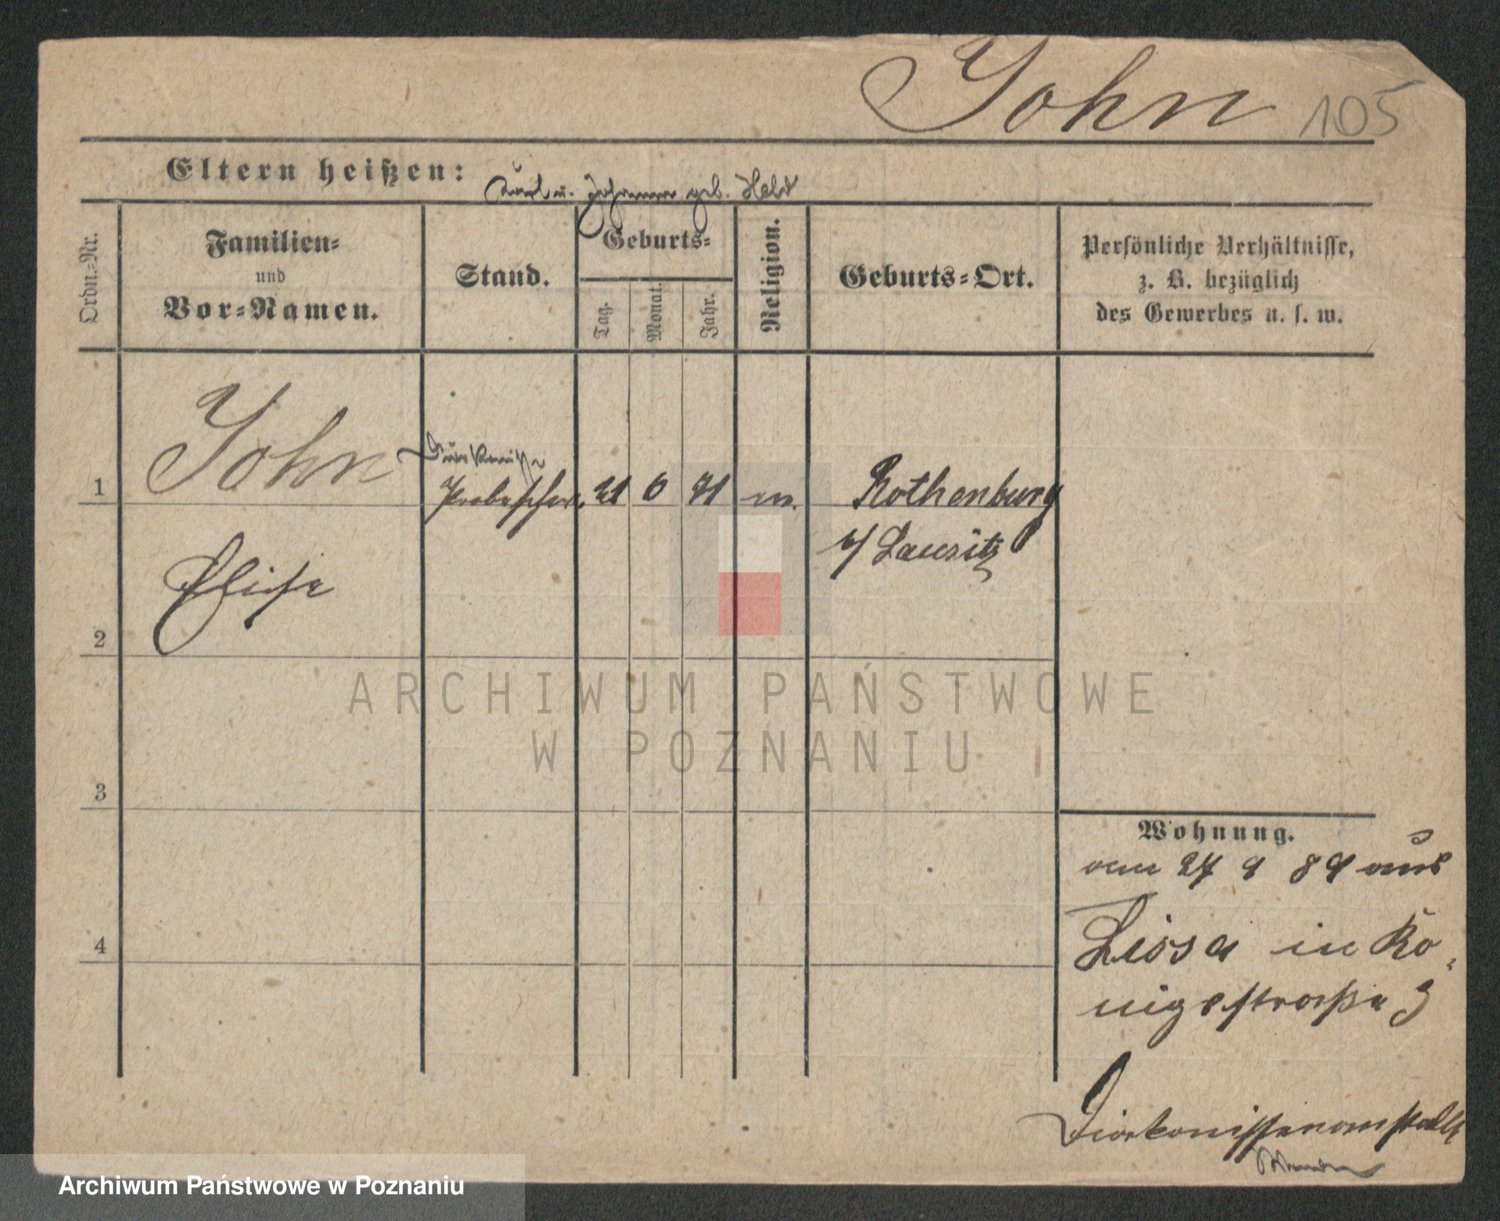 John 105
Eltern heißen: Karl u. Johanna geb. Held
Ordn.-Nr.
Familien-
und
Vor-Namen.
Stand.
Geburts-
Tag.
Monat.
Jahr.
Religion.
Geburts-Ort.
Persönliche Verhältnisse,
z. B. bezüglich
des Gewerbes u. s. w.
1
John
Probeschw. 21 6 71
Rothenburg
Lausitz
Elise
2
3
4
Wohnung.
vom 27 9 89 aus
Lissa in Kö-
nigsstraße 3
Diakonissenanstalt
ARCHIWUM PAŃSTWOWE
W POZNANIU
Archiwum Państwowe w Poznaniu